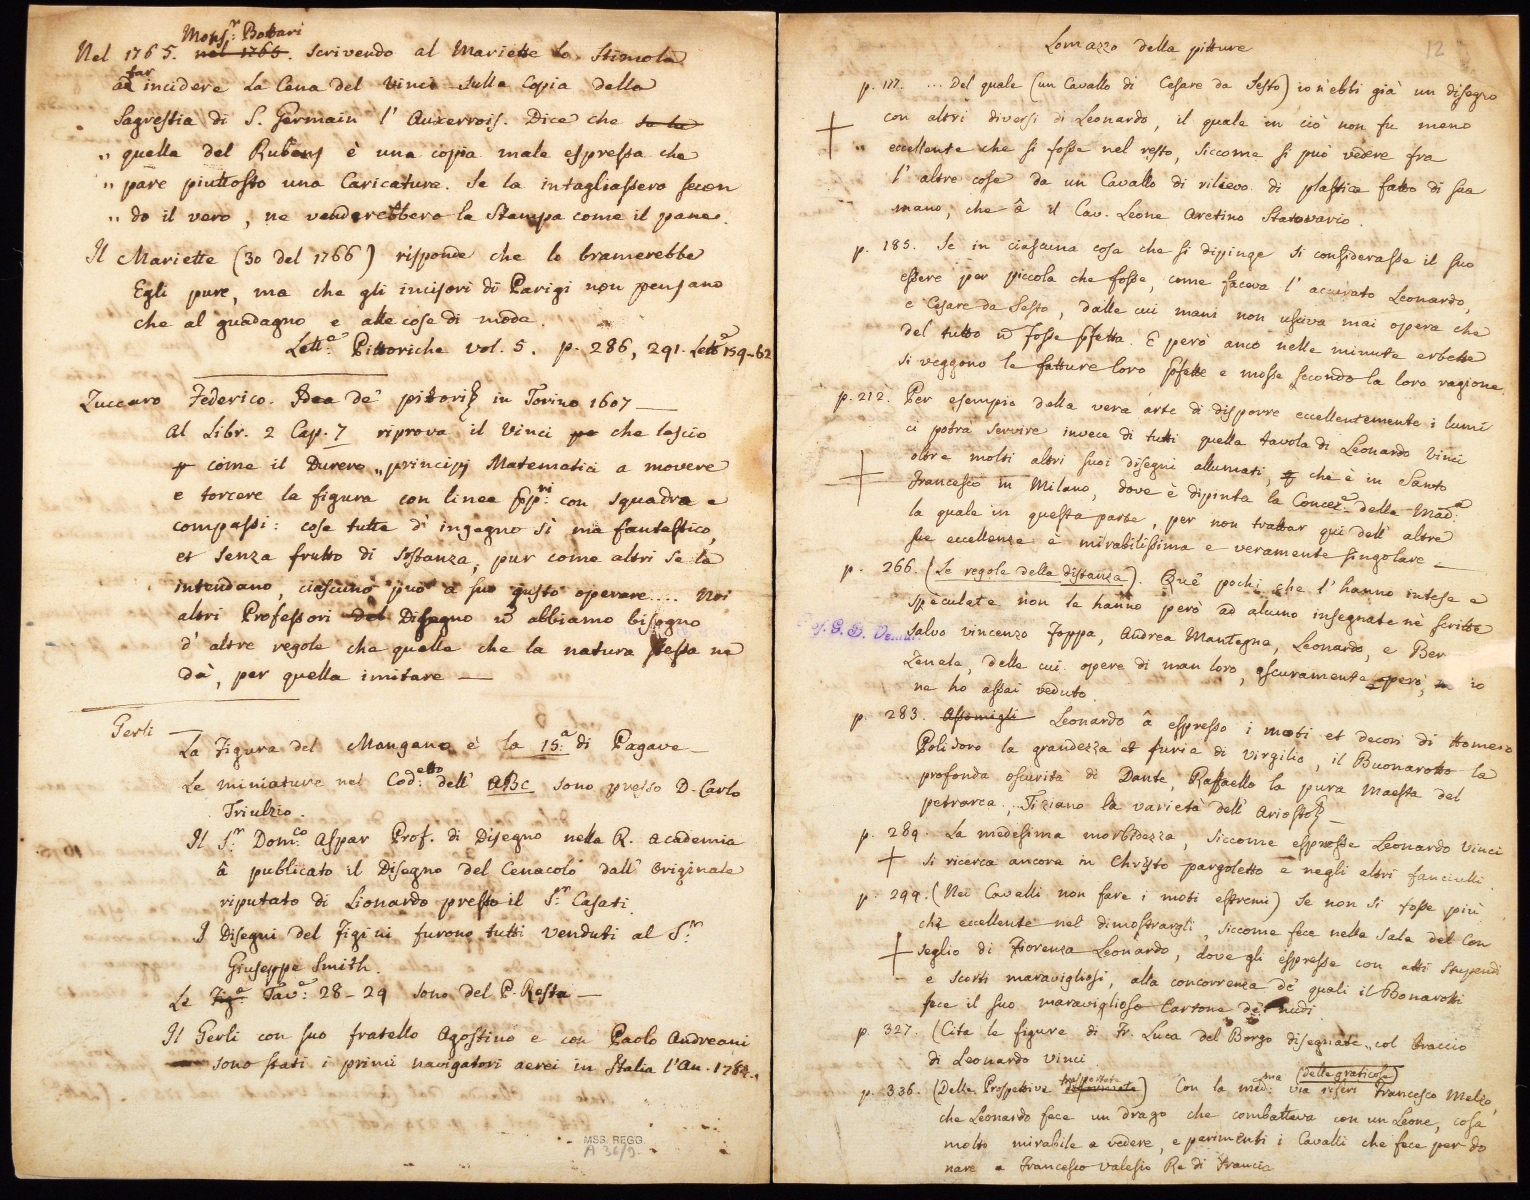 Monsʳ: Bottari
Nel 1765. nel 1766. scrivendo al Mariette lo stimola
far
ad incidere la Cena del Vinci sulla copia della
Sagrestia di S. Germain l' Auxerrois. Dice che se la
" quella del Rubens è una copia male espressa che
" pare piuttosto una Caricatura. Se la intagliassero secon
" do il vero, ne venderebbero la Stampa come il pane.
Il Mariette (30 del 1766) risponde che lo bramerebbe
Egli pure, ma che gli incisori di Parigi non pensano
che al guadagno e alle cose di moda.
Lettᵉ Pittoriche vol. 5. p. 286, 291. Lettᵉ 159-62
Zuccaro Federico. Idea de' pittori in Torino 1607 —
al Libr. 2 Cap. 7 riprova il Vinci che lascio
come il Durero „ principj Matematici a movere
e torcere la figura con linee con squadra e
compassi: cose tutte d' ingegno sì ma fantastico,
et senza frutto di sostanza, pur come altri se la
intendano, ciascuno può a suo gusto operare.... Noi
altri Professori del Disegno abbiamo bisogno
d' altre regole che quelle che la natura stessa ne
dà, per quella imitare —
Gerli —
La Figura del Mangano è la 15.ᵃ di Pagave —
Le miniature nel Cod:ᵉᵗᵗᵒ dell' ABC sono presso D. Carlo
Triulzio.
Il S.ʳ Dom.ᶜᵒ Aspar Prof. di Disegno nella R. academia
â publicato il Disegno del Cenacolo dall' originale
riputato di Lionardo presso il S.ʳ Casati.
I Disegni del Figini furono tutti venduti al S.ʳ
Giuseppe Smith.
Le Figᵉ Tavᵉ: 28-29 sono del P. Resta —
Il Gerli con suo fratello Agostino e con Paolo Andreani
sono stati i primi navigatori aerei in Italia l'An. 1784.
MSS. REGG.
A 36/9
12
Lomazzo della pitture
p. 177. ... Del quale (un Cavallo di Cesare da Sesto) io n'ebbi già un disegno
con altri diversi di Leonardo, il quale in ciò non fu meno
" eccellente che si fosse nel resto, siccome si può vedere fra
l' altre cose da un Cavallo di rilievo di plastica fatto di sua
mano, che â il Cav. Leone Aretino Statovario.
p. 185. Se in ciascuna cosa che si dipinge si considerasse il suo
essere per piccola che fosse, come faceva l' accurato Leonardo,
e Cesare da Sesto, dalle cui mani non usciva mai opera che
del tutto fosse E però anco nelle minute erbette
si veggono le fatture loro e mosse secondo la loro ragione.
p. 212. Per esempio della vera arte di disporre eccellentemente i lumi
ci potrà servire invece di tutti quella tavola di Leonardo Vinci
oltre molti altri suoi disegni allumati, che è in Santo
Francesco in Milano, dove è dipinta la Concezᵉ della Mad.ᵃ
la quale in questa parte, per non trattar qui dell' altre
sue eccellenze è mirabilissima e veramente singolare —
p. 266. (Le regole della distanza). Quê pochi che l' hanno intese e
speculate non le hanno però ad alcuno insegnate nè scritte
salvo vincenzo Foppa, Andrea Mantegna, Leonardo, e Ber
Zenale, delle cui opere di man loro, oscuramente però, io
ne ho assai veduto.
p. 283. Assomigli Leonardo â espresso i moti et decori di Homero
Polidoro la grandezza et furia di Virgilio, il Buonarotto la
profonda oscurità di Dante, Raffaello la pura Maestà del
petrarca, Tiziano la varietà dell' Ariosto —
p. 289. La medesima morbidezza, siccome espresse Leonardo Vinci
si ricerca ancora in Christo pargoletto e negli altri fanciulli.
p. 299. (Nei Cavalli non fare i moti estremi) Se non si fosse più
che eccellente nel dimostrargli, siccome fece nella Sala del Con
seglio di Fiorenza Leonardo, dove gli espresse con atti stupendi
e scorti maravigliosi, alla concorrenza de' quali il Bonarotti
fece il suo maraviglioso Cartone de' nudi.
p. 327. (Cita le figure di Fr. Luca del Borgo disegnate „ col braccio
di Leonardo Vinci
trasportata medᵐᵃ (della graticola)
p. 336. (Della Prospettiva ) Con la via riferì Francesco Melzo,
che Leonardo fece un drago che combatteva con un Leone, cosa
molto mirabile a vedere, e parimenti i Cavalli che fece per do
nare a Francesco Valesio Re di Francia